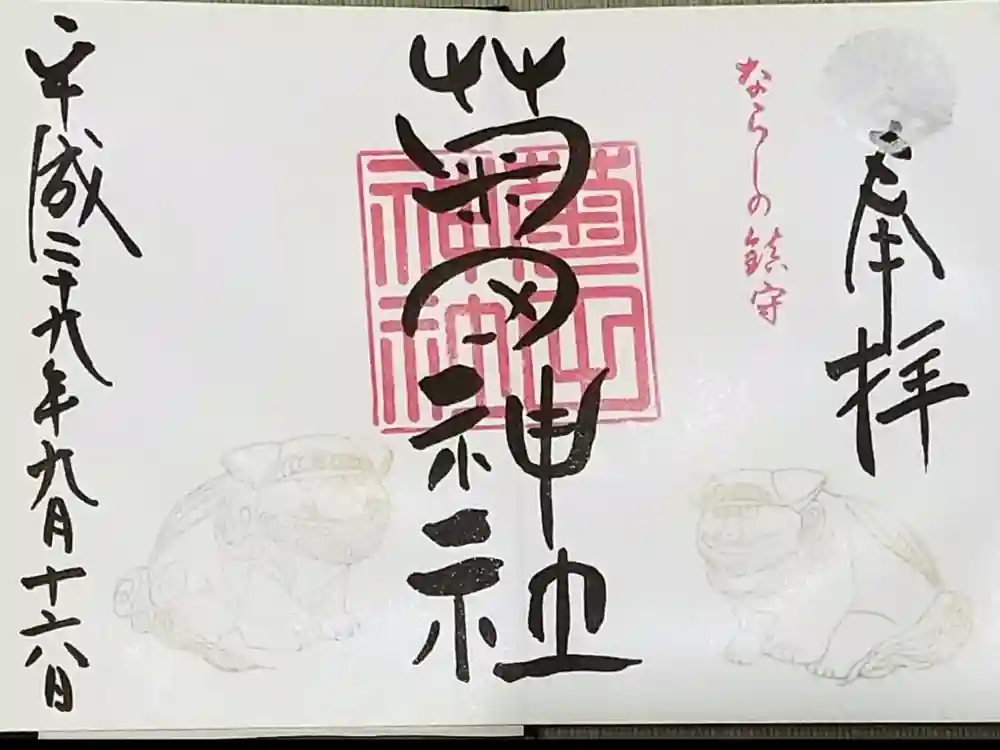 奉拝
ならしの鎮守
菊田神社
菊田神社
平成二十九年九月十六日